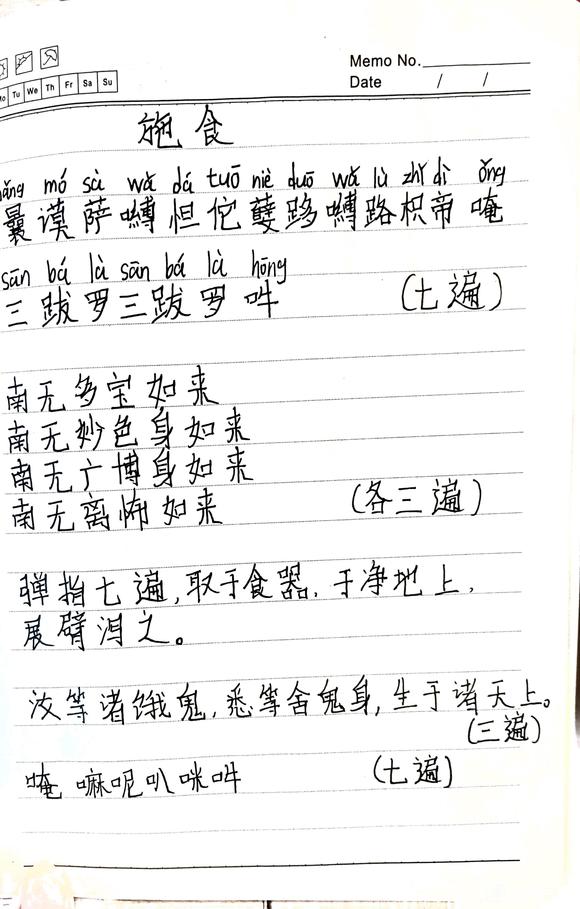 Memo No.
Mo Tu We Th Fr Sa Su
Date / /
施食
nǎng mó sà wā dá tuō niè duō wā lù zhǐ dì ǒng
曩谟萨嚩怛佗蘖哆嚩路枳帝唵
sān bá là sān bá là hōng
三跋罗三跋罗吽 (七遍)
南无多宝如来
南无妙色身如来
南无广博身如来
南无离怖如来 (各三遍)
弹指七遍,取于食器,于净地上,
展臂泻之。
汝等诸饿鬼,悉等舍鬼身,生于诸天上。
(三遍)
唵嘛呢叭咪吽 (七遍)